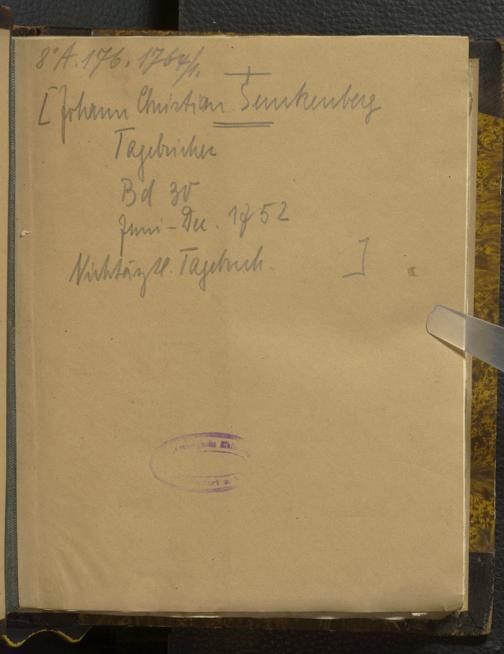 8° A. 176. 1764/1.
[Johann Christian Senckenberg
Tagebücher
Bd 30
Juni - Dec. 1752
Nichtärztl. Tagebuch. ]